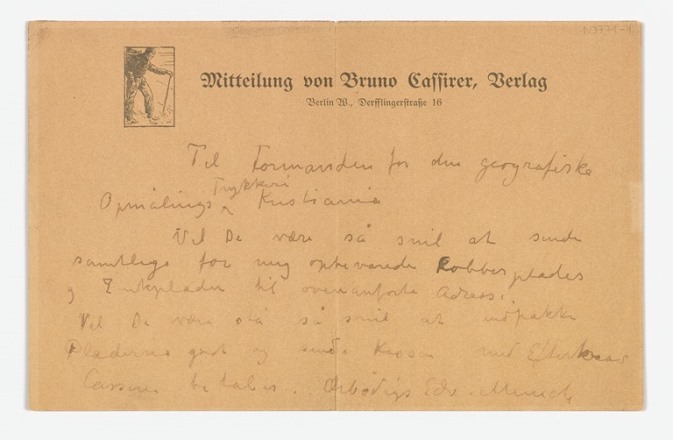 N3771-4
Mitteilung von Bruno Cassirer, Verlag
Berlin W., Derfflingerstraße 16
Til Formanden for den geografiske
Trykkeri
Opmålings Kristiania
Vil De være så snil at sende
samtlige for mig opbevarede Kobberplader
og Zinkplader til ovenanførte Adress.
Vil De være så snil at indpakke
Pladerne godt og sende Kassen med Efterkrav
Cassirer betaler. Ærbødigst Edv. Munch